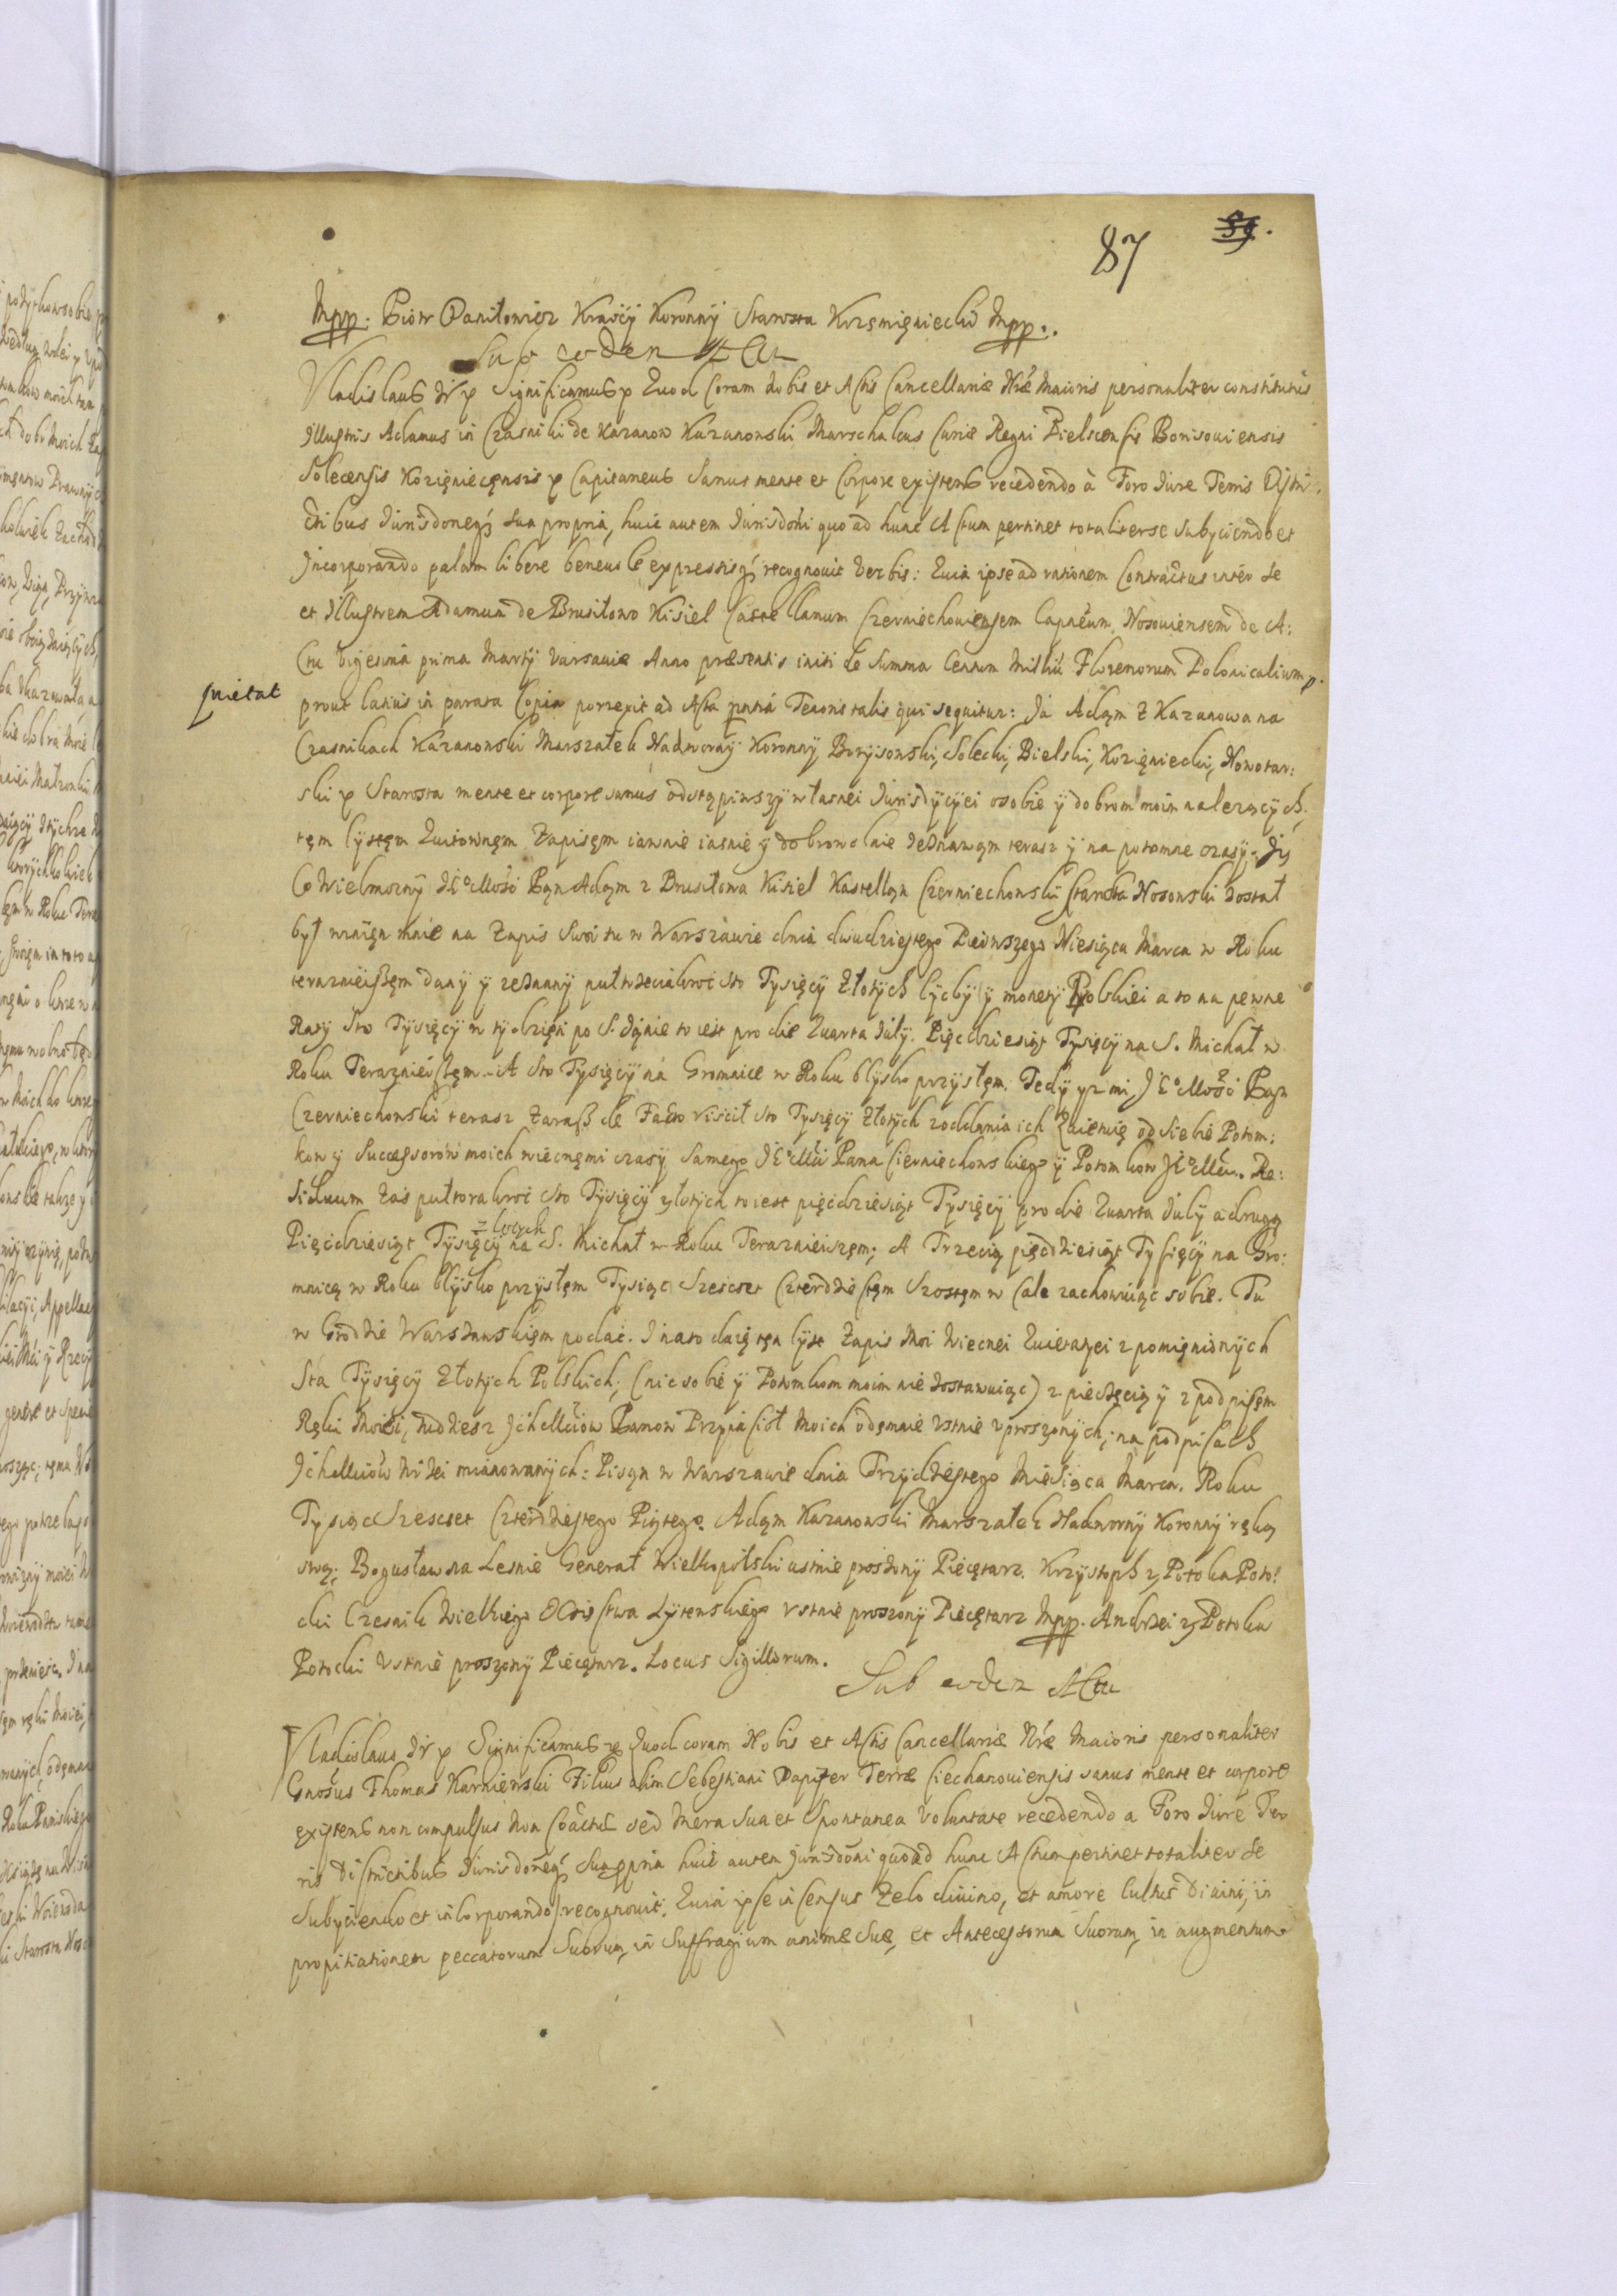 87 59.
Mpp. Piotr Daniłowicz Kraiczy Koronny Starosta Krzemięniecki Mpp.
Sub eodem Actu
Vladislaus Dr p Significamus p Quod Coram Nobis et Actis Cancellariæ Nræ Maioris personaliter constitutus
Illustris Adamus in Czasniki de Kazanow Kazanowski Marschalcus Curiæ Regni Bielscensis Borisouiensis
Solecensis Kozięnięcęnsis p Capitaneus Sanus mente et Corpore existens recedendo à Foro Jure Terris Distri:
ctibus Jurisdoneq́; sua propria, huic autem Jurisdoni quo ad hunc Actum pertinet totaliter se Subyciendo et
Incorporando palam libere beneuole expressisq́; recognouit Verbis: Quia ipse ad rationem Contractus inter se
et Illustrem Adamum de Brusiłowo Kisiel Castellanum Czerniechouiensem Capneum Nosouiensem de A:
ctu Vigesima prima Martij Varsauiæ Anno præsentis initi de Summa Centum Milliu Florenorum Polonicalium p.
quietat
prout latius in parata Copia porrexit ad Acta pntia Tenoris talis qui sequitur: Ja Adąm z Kazanowa na
Czasnikach Kazanowski Marszałek Nadworny Koronny Borysowski, Solecki, Bielski, Kozięniecki, Nowotar:
ski p Starosta mente et corpore sanus odstąpiwszy własnei Jurisdycyei osobie y dobrom moim nalezących
tęm lystęm Quitownęm Zapisęm iawnie iasnie y dobrowolnie zeznawąm teraz y na potomne czasy. Jz
Co Wielmozny JE°Mość Pąn Adąm z Brusiłowa Kisiel Kastelląn Czerniechowski Starosta Nosowski Został
był winięn mnie na Zapis Swoi tu w Warszawie dnia dwudziestego Pierwszego Miesiąca Marca w Roku
teraznieiszęm dany y zeznany pułtrzeciakroć sto Tysięcy Złotych lyczby y monety Polskiei a to na pewne
Raty Sto Tysięcy w tydzięń po S. Jąnie to iest pro die Quarta July. Pięcdziesiąt Tysięcy na S. Michał w
Roku Teraznieiszęm. A Sto Tysięcy na Gromnice w Roku blysko przyszłęm. Tedy yz mi JE°Mość Pąn
Czerniechowski teraz Zaraz de Facto viścił sto Tysięcy Złotych z oddania ich Quietuię od siebie Potom:
kow y Successorów moich wiecnęmi czasy Samego JE°Mći Pana Cierniechowskiego y Potomkow JE°Mći. Re:
siduum Zaś pułtorakroć sto Tysięcy złotych to iest pięcdziesiąt Tysięcy pro die Quarta July a drugą
Pięcdziesiąt Tysięcy złotych na S. Michał w Roku Teraznieiszęm; A Trzecią pięcdziesiąt Tysięcy na Gro:
mnicę w Roku blysko przyszłęm Tysiąc Szescset Czterdziestęm Szostęm w Cale zachowuiąc sobie. Tu
w Grodzie Warszawskięm podać. I na to daię tęn lyst Zapis Moi Wiecnei Quietacyei z pomięnionych
Sta Tysięcy Złotych Polskich, (nic sobie y Potomkom moim nie zostawuiąc) z pieczęcią y z podpisęm
Ręki Moiei, tudziesz Jchmćiów Panow Przyiaciół Moich odęmnie Vstnie vproszonych, na podpisach
Jchmćiów nizei mianowanych: Pisąn w Warszawie dnia Trzydziestego Miesiąca Marca. Roku
Tysiąc Szescset Czterdziestego Piątego. Adąm Kazanowski Marszałek Nadworny Koronny ręką
swą; Bogusław na Lesnie Generał Wielkopolski ustnie proszony Pieczętarz. Krzystoph z Potoka Poto:
cki Czesnik Wielkiego Xięstwa Lytewskiego vstnie proszony Pieczętarz Mpp. Andrzei z Potoka
Potocki Vstnie proszony Pieczętarz. Locus Sigillorum.
Sub eodem Actu
Vladislaus Dr p Significamus p Quod coram Nobis et Actis Cancellariæ Nræ Maioris personaliter
Gnosus Thomas Karniewski Filius olim Sebestiani Dapifer Terræ Ciechanouiensis sanus mente et corpore
existens non compulsus Non Coactus sed Mera Sua et Spontanea Voluntate recedendo a Foro Jure Ter
ris Districtibus Jurisdoneq́; Sua ppria huic autem Jurisdoni quo ad hunc Actum pertinet totaliter se
Subyciendo et incorporando recognouit. Quia ipse incensus Zelo diuino, et amore Cultus Diuini, in
propitiationem peccatorum Suorum, in Suffragium animæ Suæ, et Antecessorum Suorum, in augmentum